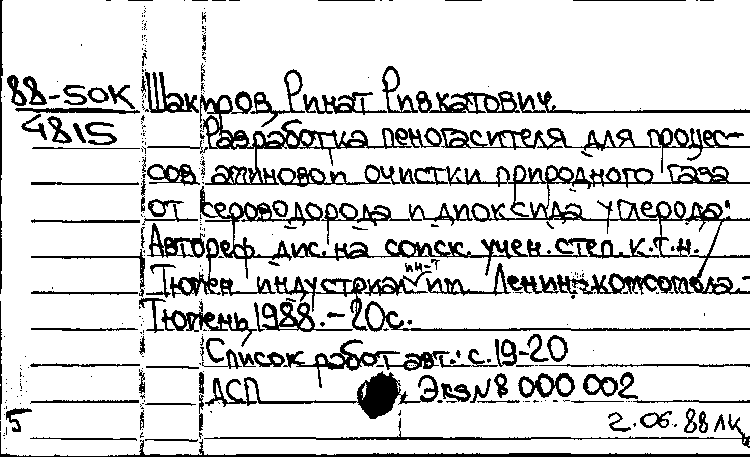 88-50К Шакиров, Ринат Ривкатович.
4815 Разработка пеногасителя для процес-
сов аминовой очистки природного газа
от сероводорода и диоксида углерода:
Автореф. дис. на соиск. учен. степ. к.т.н. /
Тюмен. индустриал. ин-т им. Ленин. комсомола.-
Тюмень, 1988. - 20с.
Список работ авт.: с. 19-20
ДСП Экз № 000 002
5 2.06.88 ЛК